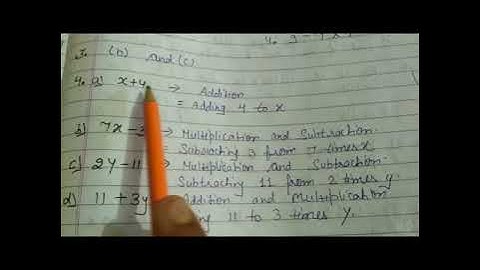 3. (b) and (c)
4. a) x+4 → Addition
= Adding 4 to x
b) 7x-3 → Multiplication and Subtraction
Subtracting 3 from 7 times x
c) 2y-11 → Multiplication and Subtraction.
Subtracting 11 from 2 times y.
d) 11 + 3y Addition and Multiplication
11 to 3 times y.